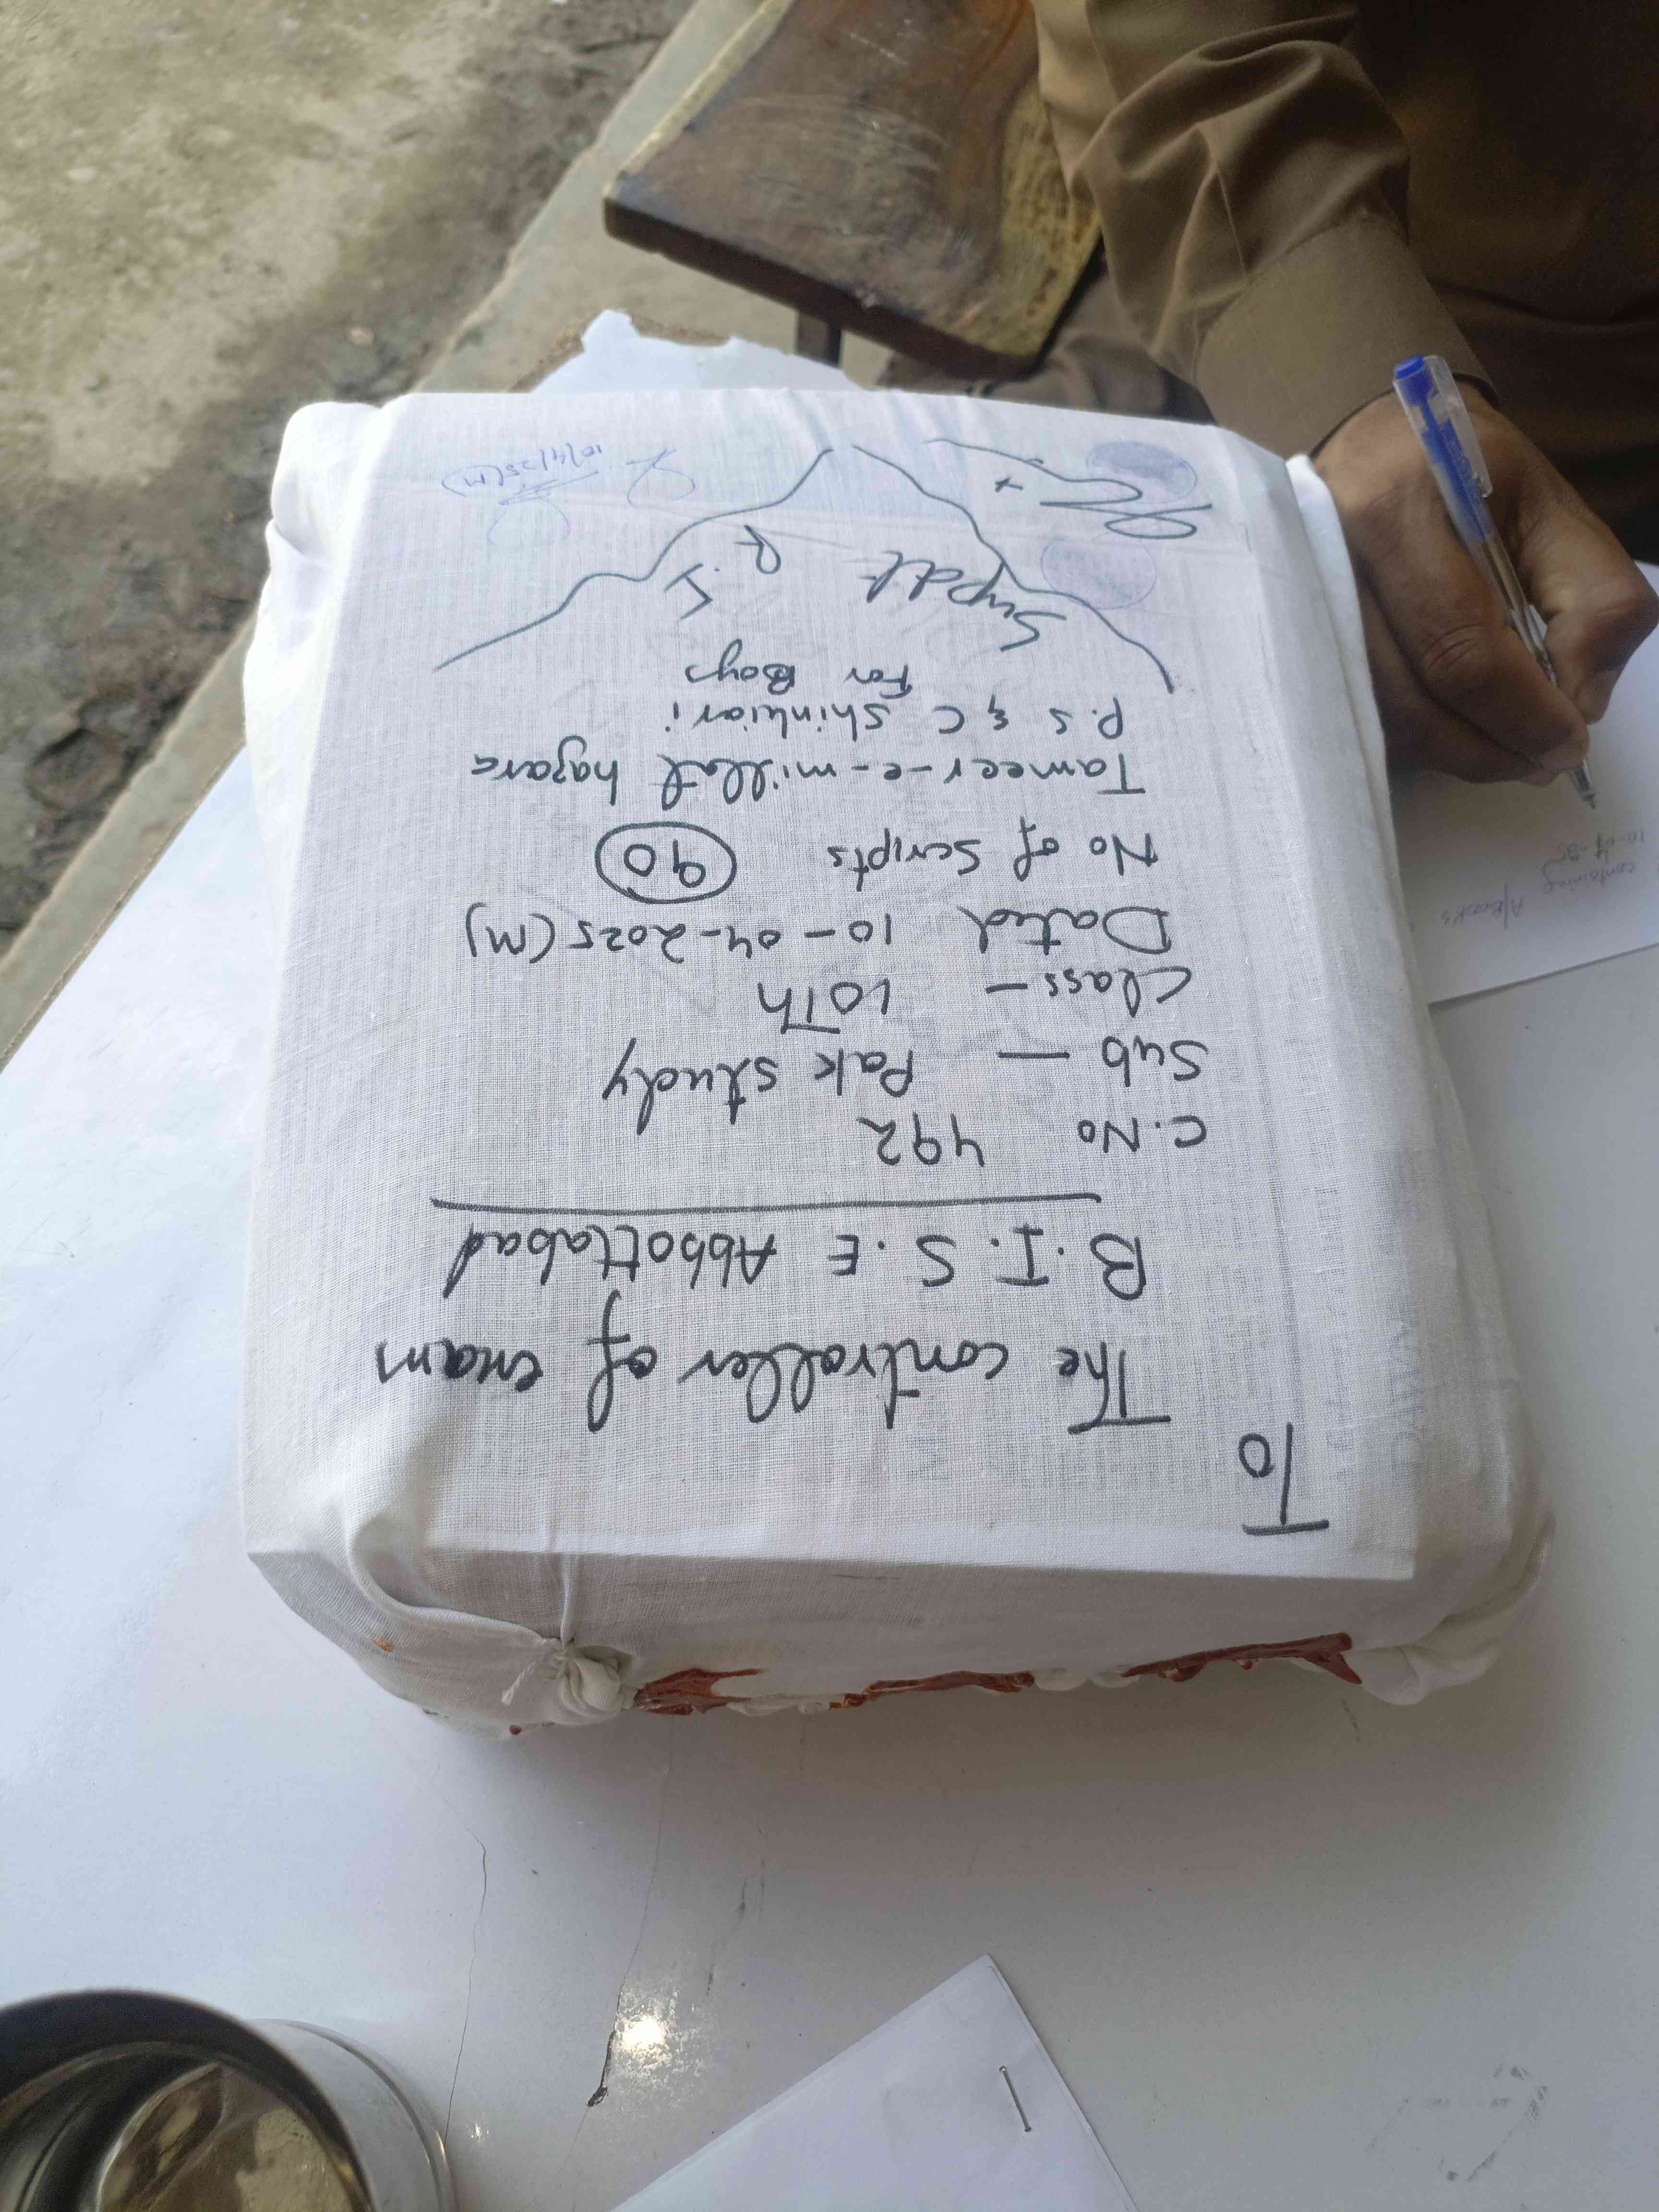 To
The controller of exam
B.I.S.E Abbottabad
C.No 492
Sub — Pak study
Class — 10Th
Dated 10-04-2025(M)
No of Scripts 90
Tameer-e-millat hazara
P.S & C Shinkiari
For Boys
Supdt R.I
10/4/25(M)
containing
10-04-25